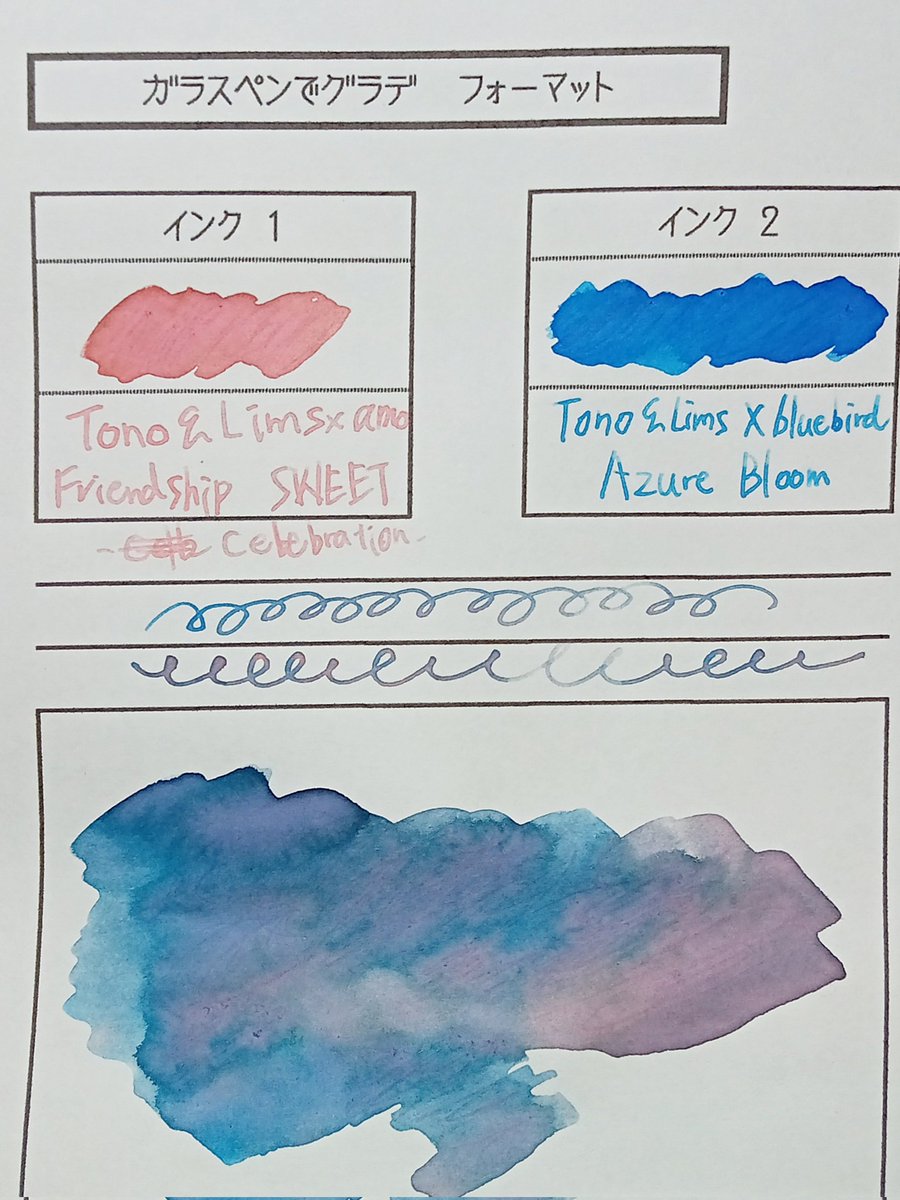 ガラスペンでグラデ　フォーマット
インク 1
Tono & Lims x amo
Friendship SWEET
- Celebration -
インク 2
Tono & Lims X bluebird
Azure Bloom